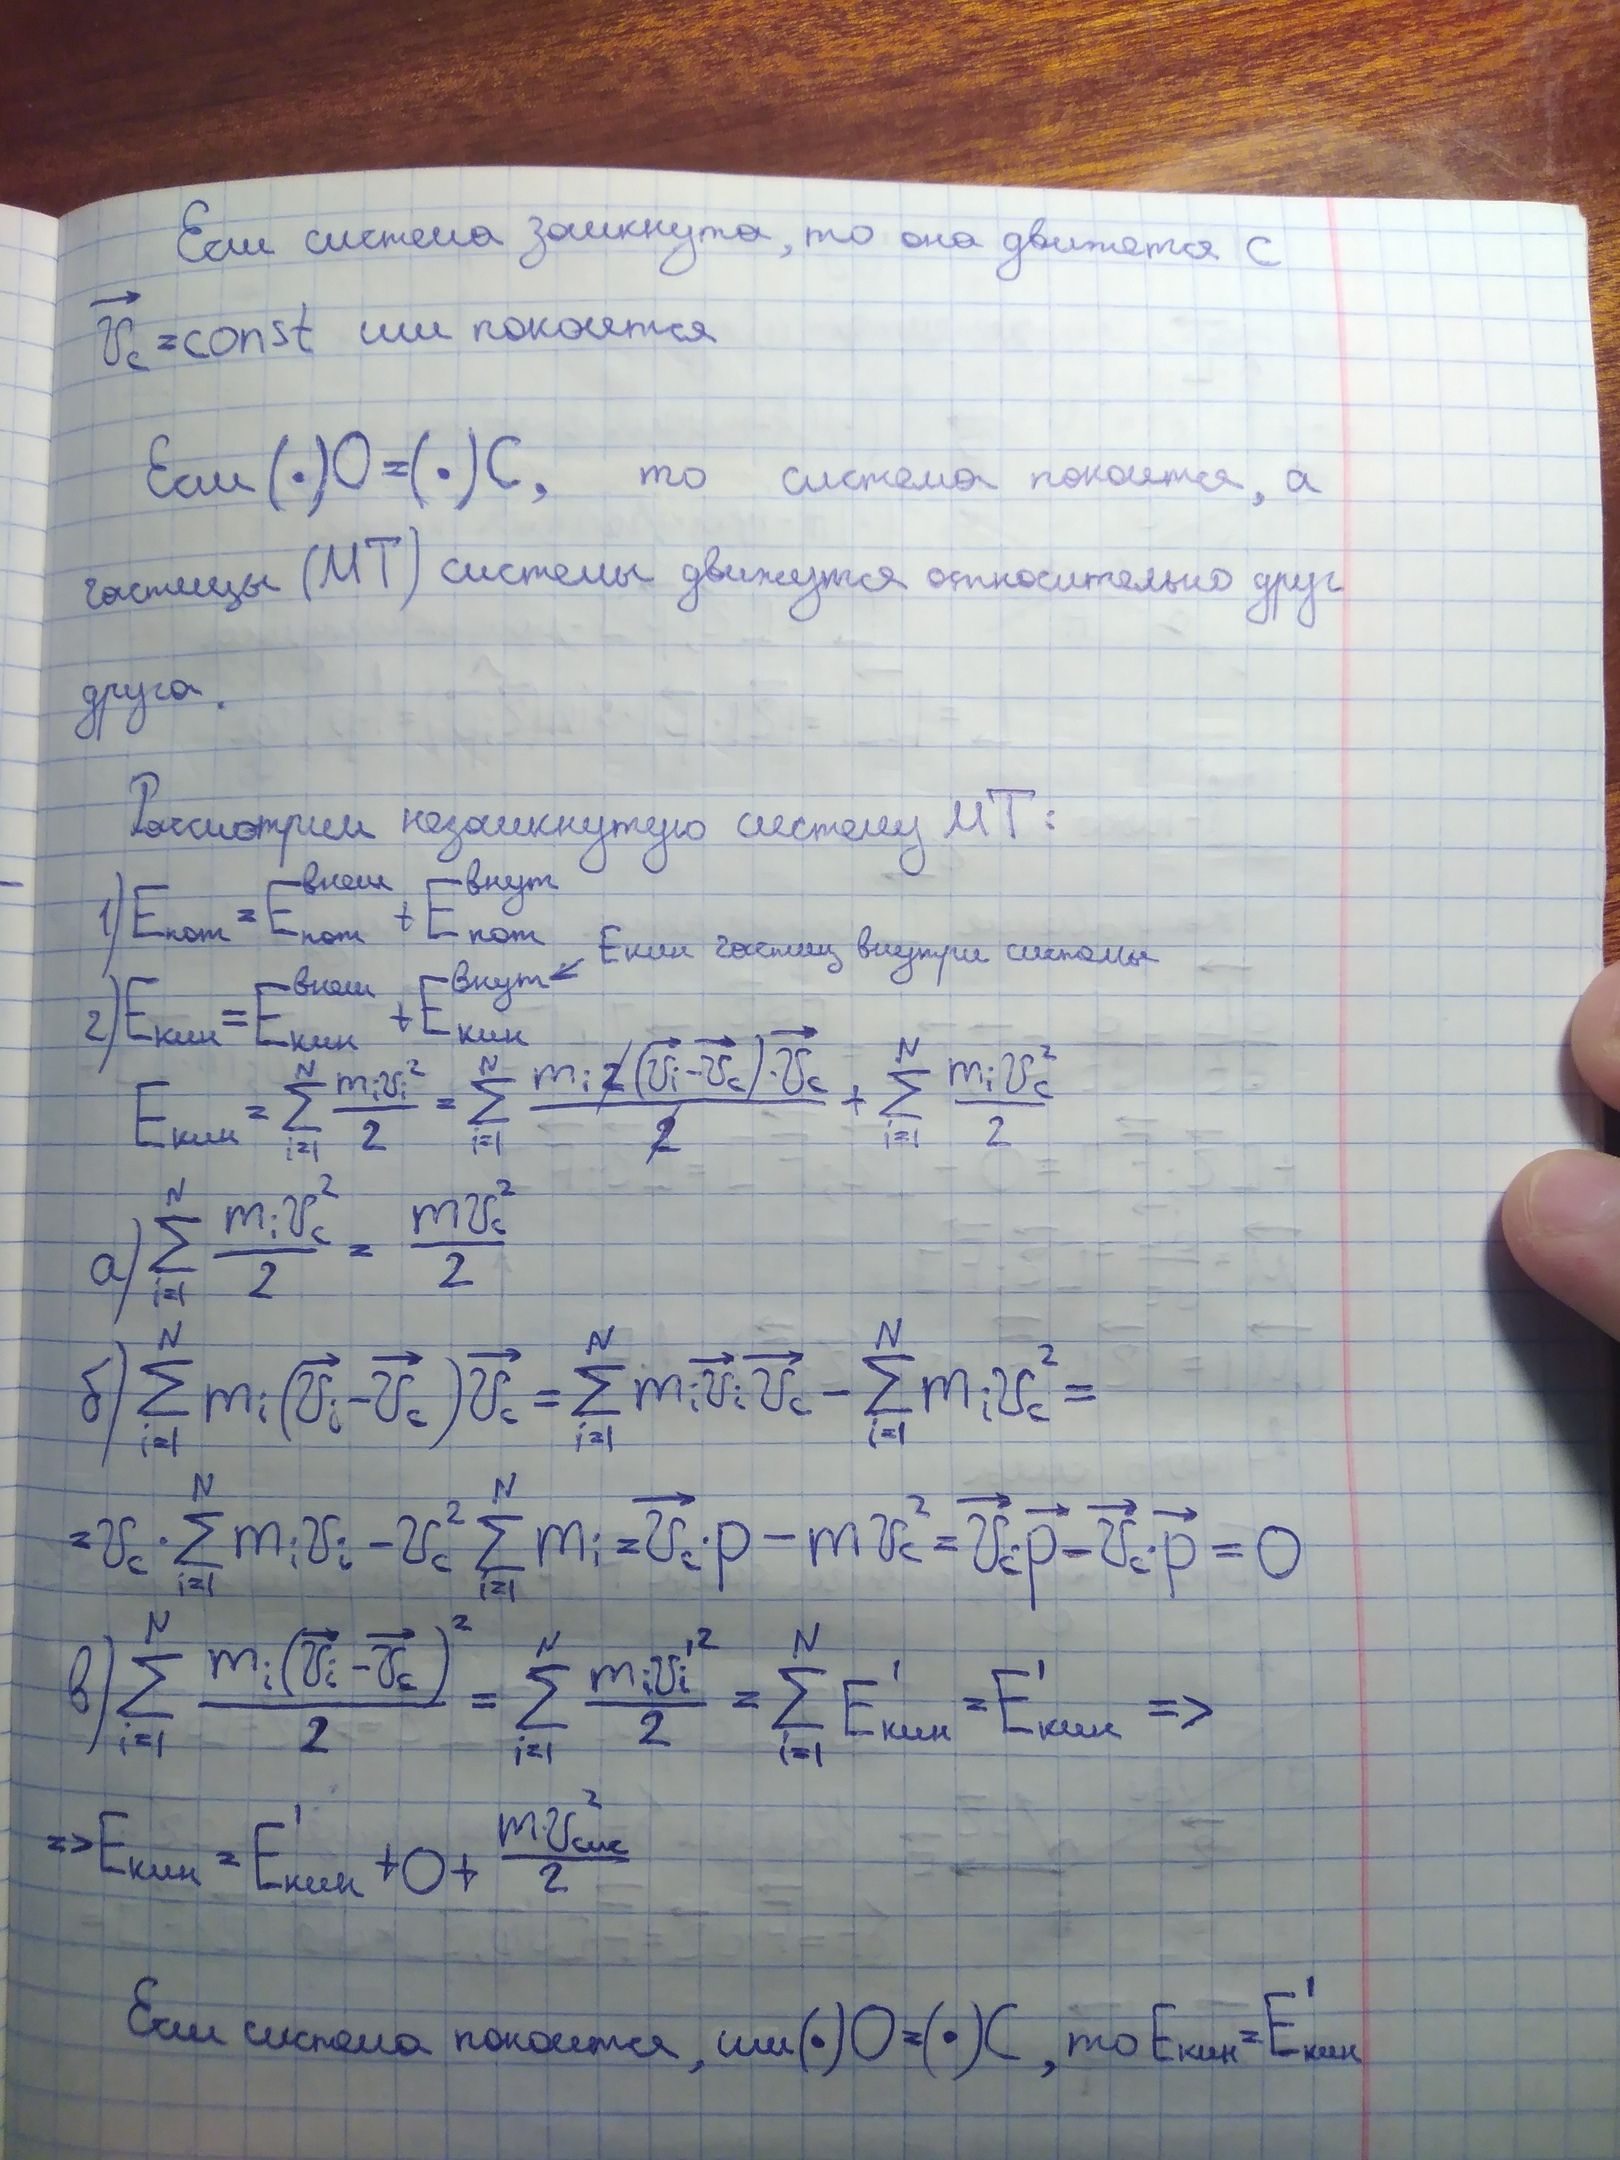 Если система замкнута, то она движется с
v⃗c = const или покоится
Если (·)O = (·)C, то система покоится, а
частицы (МТ) системы движутся относительно друг
друга.
Рассмотрим незамкнутую систему МТ:
1) Eпот = Eпот^внеш + Eпот^внут
Eкин частиц внутри системы
2) Eкин = Eкин^внеш + Eкин^внут
Eкин = ∑_{i=1}^{N} mᵢvᵢ²/2 = ∑_{i=1}^{N} mᵢ2(v⃗ᵢ - v⃗c)·v⃗c/2 + ∑_{i=1}^{N} mᵢvc²/2
а) ∑_{i=1}^{N} mᵢvc²/2 = mvc²/2
б) ∑_{i=1}^{N} mᵢ(v⃗ᵢ - v⃗c)v⃗c = ∑_{i=1}^{N} mᵢv⃗ᵢv⃗c - ∑_{i=1}^{N} mᵢvc² =
= vc · ∑_{i=1}^{N} mᵢvᵢ - vc² ∑_{i=1}^{N} mᵢ = v⃗c·p - mvc² = v⃗c·p⃗ - v⃗c·p⃗ = 0
в) ∑_{i=1}^{N} mᵢ(v⃗ᵢ - v⃗c)²/2 = ∑_{i=1}^{N} mᵢvᵢ'²/2 = ∑_{i=1}^{N} E'кин = E'кин =>
=> Eкин = E'кин + 0 + m·vсис²/2
Если система покоится, или (·)O = (·)C, то Eкин = E'кин